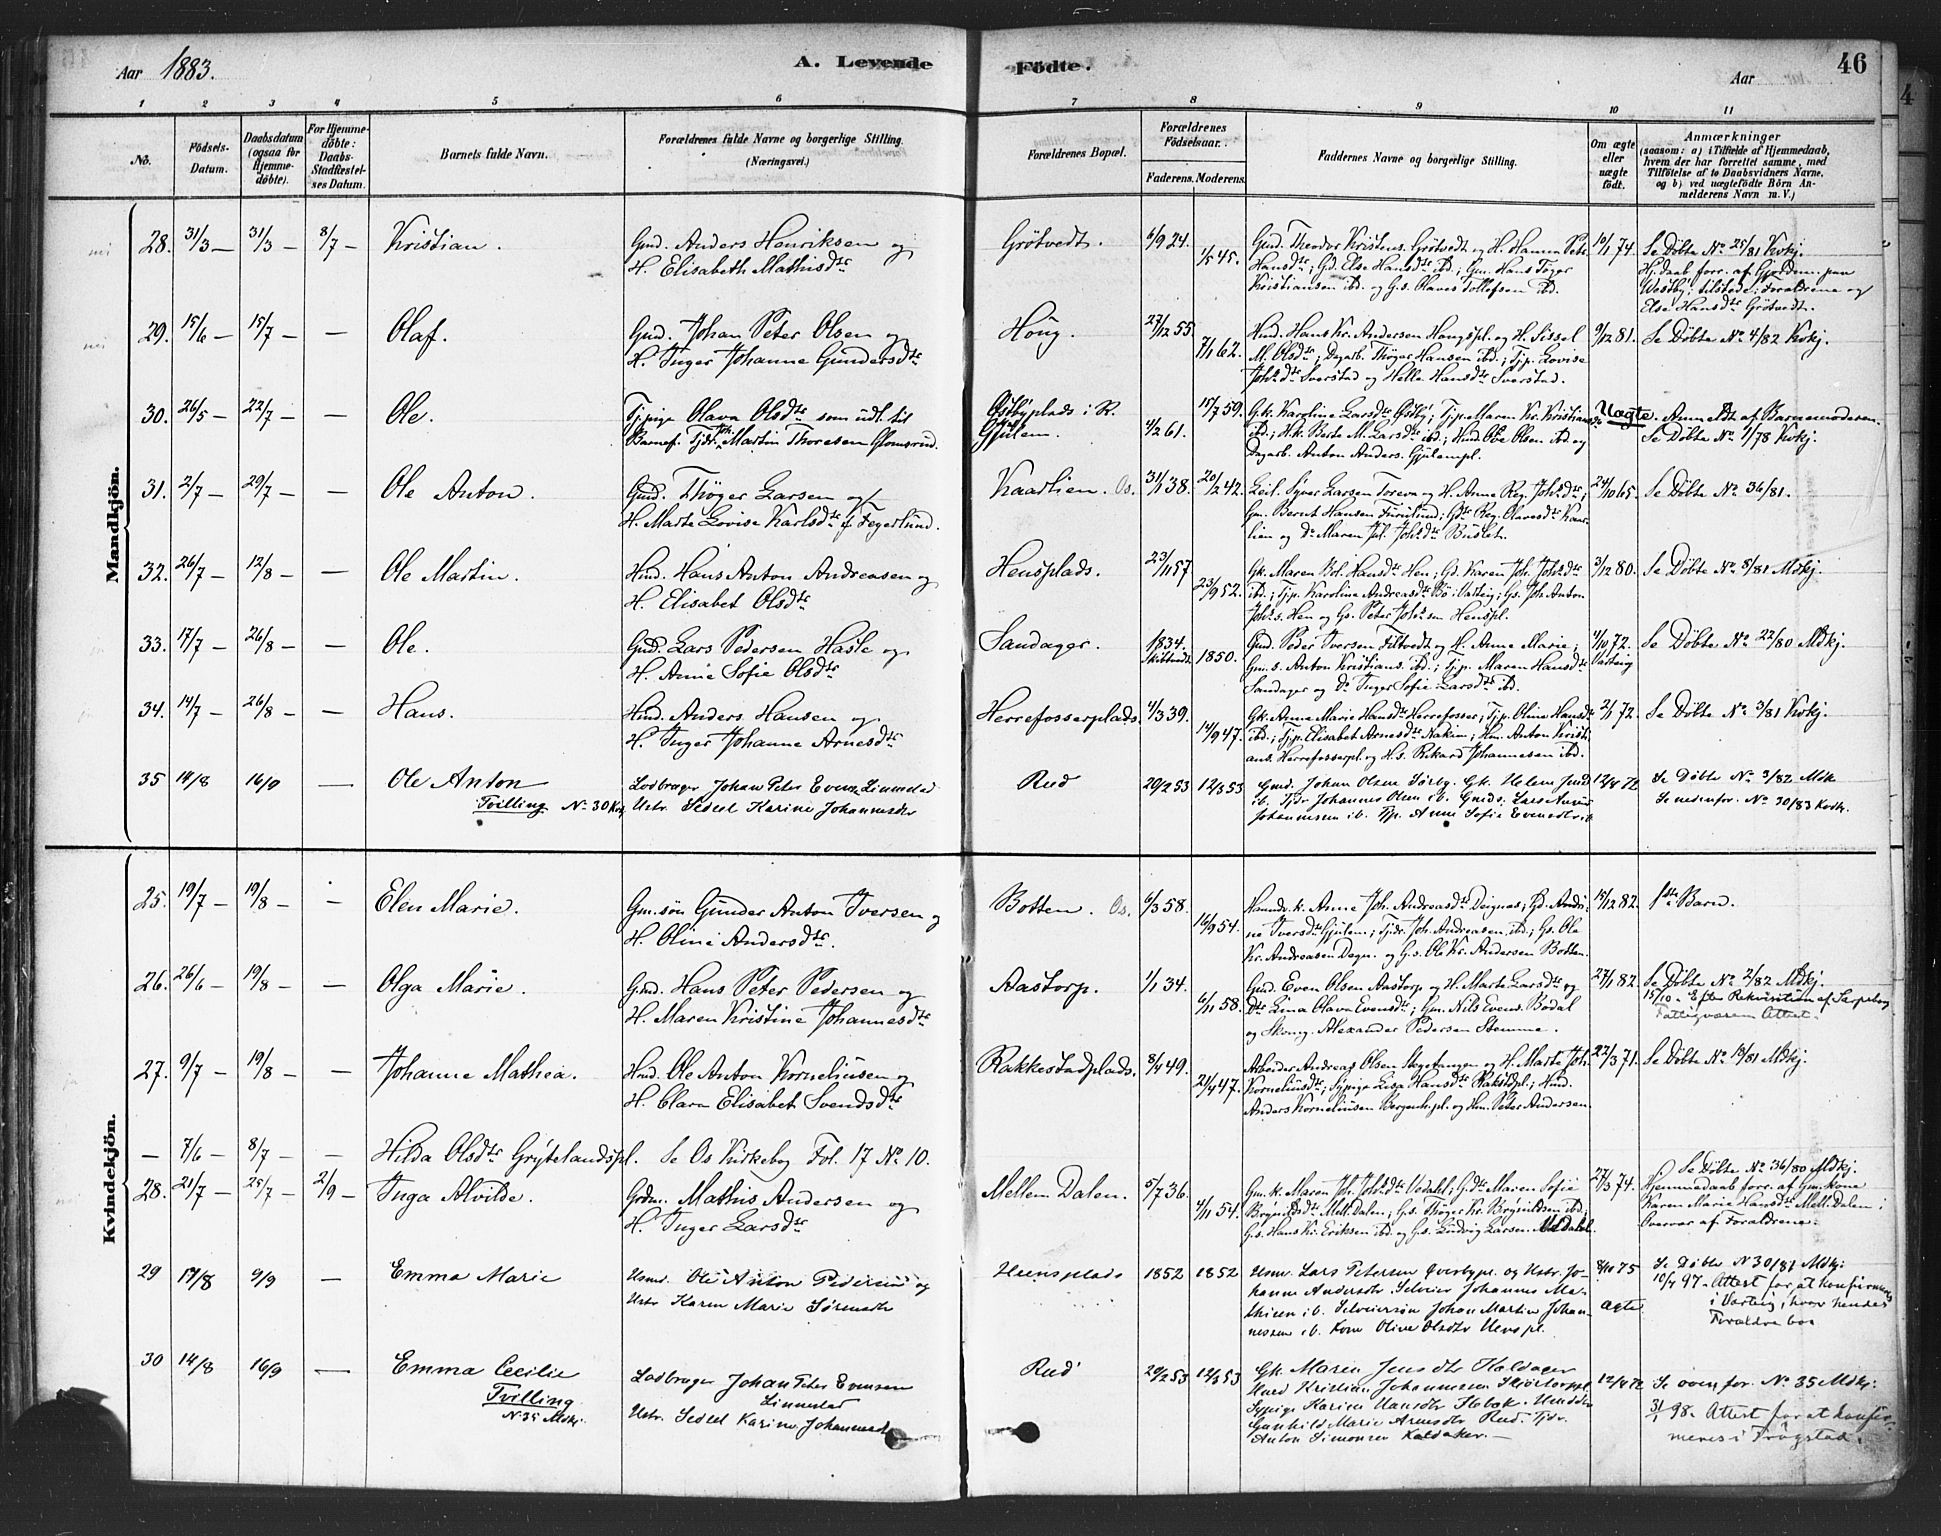 Aar 1883.
A. Levende Födte.
Aar
46
1 2 3 4 5 6 7 8 9 10 11
No.
Födsels-Datum.
Daabsdatum (ogsaa for Hjemme-döbte).
For Hjemme-döbte: Daabs-Stadfæstel-ses Datum.
Barnets fulde Navn.
Forældrenes fulde Navne og borgerlige Stilling. (Næringsvei.)
Forældrenes Bopæl.
Forældrenes Födselsaar.
Faderens. Moderens.
Faddernes Navne og borgerlige Stilling.
Om ægte eller uægte födt.
Anmærkninger
(saasom: a) i Tilfælde af Hjemmedaab,
hvem der har forrettet samme, med
Tilföielse af to Daabsvidners Navne,
og b) ved uægtefödte Börn An-
melderens Navn m. V.)
Mandkjön.
28. 31/3 — 31/3 — 8/7 — Kristian.
Gmd. Anders Henriksen og
H. Elisabeth Mathisdtr
Grötvedt. 6/9 24. 1/5 45.
Gmd. Theodor Kristens. Grötvedt og H. Hanna Pet.
Hansdtr; Gd. Else Hansdtr ibd.; Gm. Hans Töger
Kristiansen ibd. og G.s. Olaves Tollefsen ibd.
10/1 74.
Se Döbte No 25/81 Kvkj.
Hj.daab forr. af Gjordem.
Westby; tilstede: Forældrene og
Else Hansdtr Grötvedt.
29. 15/6 — 15/7 — — Olaf.
Gmd. Johan Peter Olsen og
H. Inger Johanne Gundersdtr
Houg. 27/12 55. 7/1 62.
Hmd. Hans Kr. Andersen Hougspl. og H. Sissel
M. Olsdtr; Dagarb. Thöger Hansen ibd.; Tjp. Lovise
Johsdtr Sverstad og Helle Hansdtr Sverstad.
9/12 81. Se Döbte No 4/82 Kvkj.
30. 26/5 — 22/7 — — Ole.
Tjpige Olava Olsdtr som udl. til
Barnef. Tjdr. Joh. Martin Thoresen Glomsrud.
Östbyplads i R.
Gjulem. 4/2 61. 15/7 59.
G.k. Karoline Larsdtr Östby; Tjp. Maren Kr. Kristiansd.
ibd.; H.k. Berte M. Larsdtr ibd.; Hmd. Ole Olsen ibd og
Dagarb. Anton Anders. Gjulempl.
Uægte. Anmeldt af Barnemoderen.
Se Döbte No 1/78 Kvkj.
31. 2/7 — 29/7 — — Ole Anton.
Gmd. Thöger Larsen og
H. Marte Lovise Karlsdtr f. Fegerlund.
Kaarlien. Os. 31/1 38. 20/2 42.
Leil. Syver Larsen Toreva og H. Anne Reg. Johsdtr;
Gm. Bernt Hansen Furulund; Gdtr Reg. Olavesdtr Kaar-
lien og Do Maren Joh. Johsdtr Buslet.
24/10 65. Se Döbte No 36/81.
32. 26/7 — 12/8 — — Ole Martin.
Hmd. Hans Anton Andreasen og
H. Elisabet Olsdtr
Hensplads. 23/1 57 23/9 52.
Gk. Maren Bol. Hansdtr Hen; Gd. Karen Joh. Johsdtr
ibd.; Tjp. Karoline Andreasdtr Bö i Varteig; Gs. Joh. Anton
Johs.s. Hen og Gs. Peter Johsen Henspl.
3/12 80. Se Döbte No 8/81 Mdkj.
33. 17/7 — 26/8 — — Ole.
Gmd. Lars Pedersen Hasle og
H. Anne Sofie Olsdtr
Sandager. 1834. Skibtvedt 1850.
Gmd. Peder Iversen Filtvedt og H. Anne Marie;
Gm.s. Anton Kristians. ibd.; Tjp. Maren Hansdtr
Sandager og Do Inger Sofie Larsdtr ibd.
4/10 72. Varteig Se Döbte No 22/80 Mdkj.
34. 14/7 — 26/8 — — Hans.
Hmd. Anders Hansen og
H. Inger Johanne Arnesdtr
Herrefosserplads. 4/3 39. 14/9 47.
Gk. Anne Marie Hansdtr Herrefosser; Tjp. Oline Hansdtr
ibd.; Tjp. Elisabet Arnesdtr Nakim; Hm. Anton Kristi-
ans. Herrefosserpl. og H.s. Rikard Johannesen ibd.
2/1 72. Se Döbte No 3/81 Kvkj.
35 14/8 16/9 — Ole Anton
Tvilling No 30 Kvkj
Lodbruger Johan Peter Evens. Linnestad
Ustr. Sedsel Karine Johannesdtr
Rud 29/2 53 12/3 53
Gmd. Johan Olsen Sörby. Gk. Helene Jensd
ib. Tjdr Johannes Olsen ib. Gmds. Lars Anton
Johannesen ib. Tjp. Anne Sofie Evensdtr ib
12/4 72
Se Döbte No 3/82 Mdk
Se nedenfor. No 30/83 Kvdkj.
Kvindekjön.
25. 19/7 — 19/8 — — Elen Marie.
Gm.sön Gunder Anton Iversen og
H. Oline Andersdtr.
Botten. Os. 6/3 58. 16/9 54.
Hmds. k. Anne Joh. Andreasdtr Deignes; Gd. Andri-
ne Iversdtr Gjulem; Tjdr. Joh. Andreasen ibd.; Gs. Ole
Kr. Andreasen Degn. og G.s. Ole Kr. Andersen Botten.
15/12 82. 1ste Barn.
26. 26/6 — 19/8 — — Olga Marie.
Gmd. Hans Peter Pedersen og
H. Maren Kristine Johannesdtr
Aastorp. 1/1 34. 6/11 58.
Gmd. Even Olsen Aastorp og H. Marte Larsdtr og
Dtr Lina Olava Evensdtr; Gm. Nils Evens. Bodal
og Skomg. Alexander Pedersen Stemme.
27/1 82. Se Döbte No 2/82 Mdkj.
15/10 - Efter Rekvisition af Sarpsborg
Fattigvæsen Attest.
27. 9/7 — 19/8 — — Johanne Mathea.
Hmd. Ole Anton Korneliusen og
H. Clara Elisabet Svendsdtr
Rakkestadplads. 8/4 49. 21/4 47.
Arbeider Andreas Olsen Hegetangen og H. Marte Joh.
Korneliusdtr; Sypige Lisa Hansdtr Rakstdpl.; Hmd.
Anders Korneliusen Bergenh.pl. og Hm. Peter Andersen.
22/3 71. Se Döbte No 13/81 Mdkj.
— 7/6 — 8/7 — — Hilda Olsdtr Grytelandspl. Se Os Kirkebog Fol. 17 No 10.
28. 21/7 — 25/7 — 2/9 — Inga Alvilde.
Grdm. Mathis Andersen og
H. Inger Larsdtr
Mellem Dalen. 5/7 36. 4/11 54.
Gm.k. Maren Joh. Johsdtr Vedahl; G.dtr Maren Sofie
Brynildsdtr Mell. Dalen; G.s. Thöger Kr. Brynildsen ibd.;
G.s. Hans Kr. Eriksen ibd. og G.s. Ludvig Larsen M. Dalen.
27/3 74. Se Döbte No 36/80 Mdkj.
Hjemmedaab forr. af Gm.kone
Karen Marie Hansdtr Mell. Dalen i
Overvær af Forældrene.
29 19/8 9/9 — Emma Marie
Usmd. Ole Anton Pedersen og
Ustr Karen Marie Sörensdtr
Heensplads 1852 1852
Usm. Lars Petersen Overbypl. og Ustr. Jo-
hanne Andersdtr. Selveier Johannes Ma-
thisen ib. Selveiersön Johan Martin Johan-
nessen ib. Kone Olive Olsdtr Henspl.
8/10 75 ægte
Se Döbte N 30/81 Mdkj.
10/4 97 - Attest for at konfirmeres
i Varteig, hvor hendes
Forældre bor
30 14/8 16/9 — Emma Cecilie
Tvilling
N. 35 Mdkj.
Lodbruger Johan Peter Evensen
Linnestad
Ustr. Sedsel Karine Johannesdtr
Rud 29/2 53 12/3 53
Gk. Maren Jensdtr Haldager
Umd Kristian Johannessen
Sypige Karine Hansdtr
Gunhild Marie Arnesdtr Rud. Tjdr.
Anton Simonsen Kaldaker. —
12/4 72
Se ovenfor. No 35 Mdkj.
3/1 98. Attest for at konfir-
meres i Trögstad.